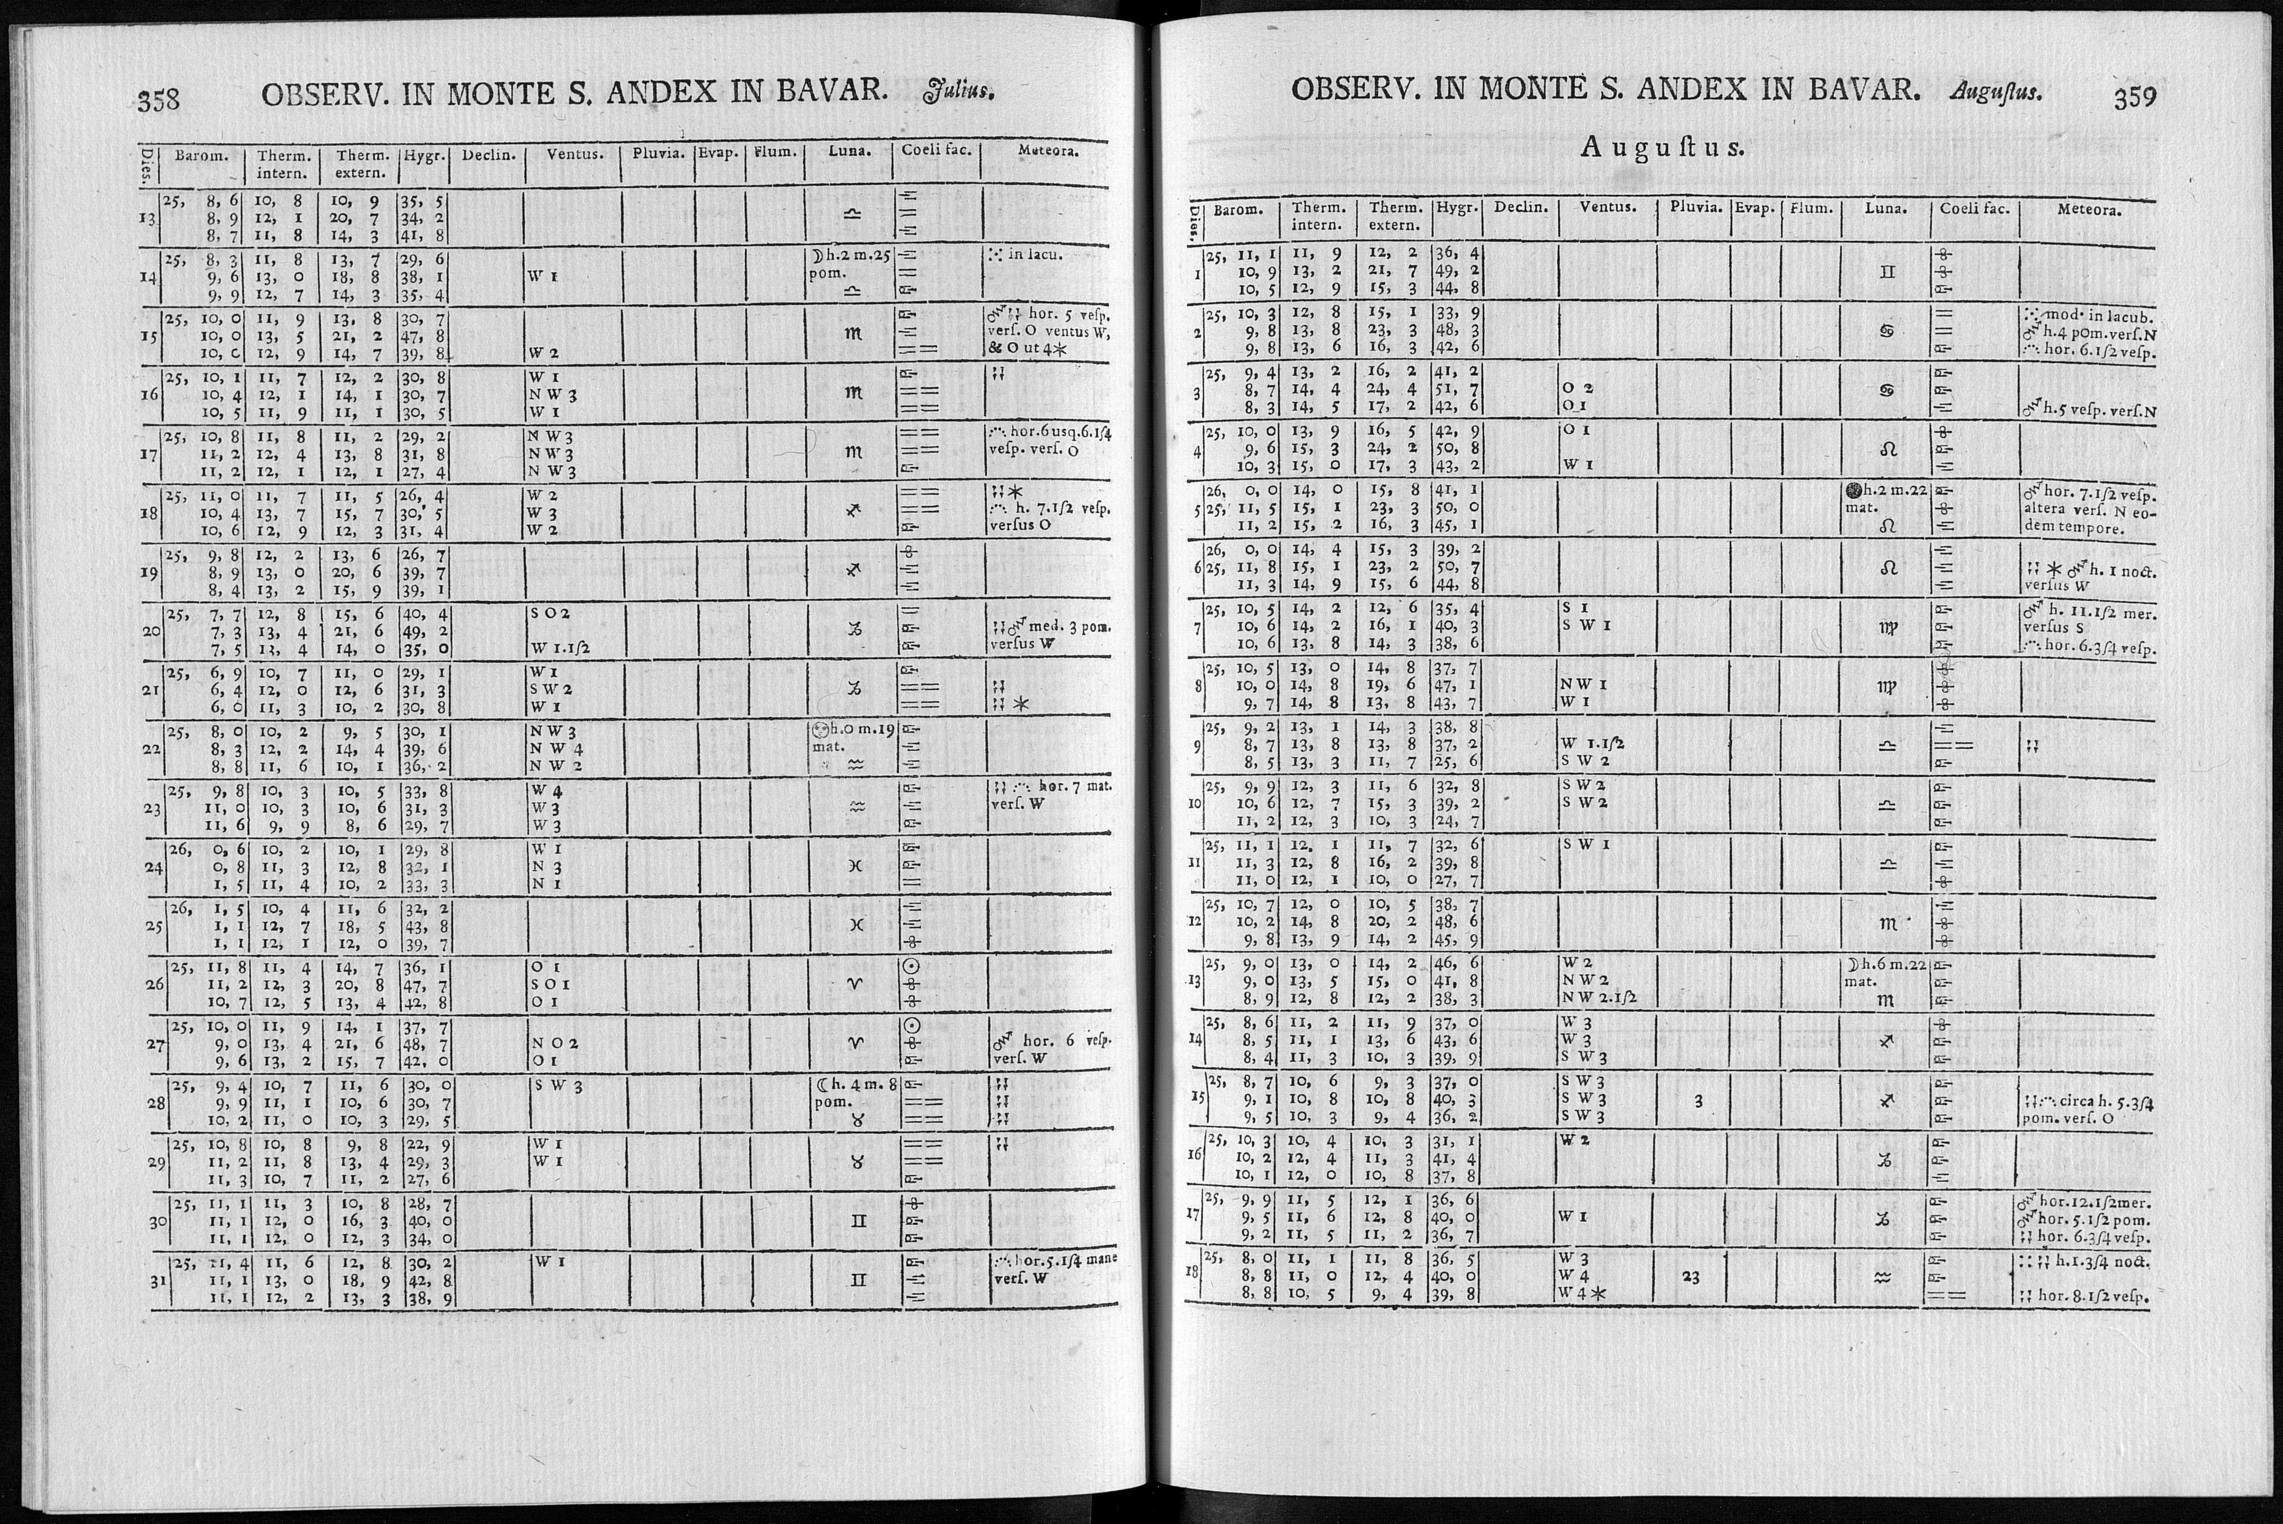 358 OBSERV. IN MONTE S. ANDEX IN BAVAR. Julius.
Dies. Barom. Therm. intern. Therm. extern. Hygr. Declin. Ventus. Pluvia. Evap. Flum. Luna. Coeli fac. Meteora.
25, 8, 6 10, 8 10, 9 35, 5
13 8, 9 12, 1 20, 7 34, 2 ♎
8, 7 11, 8 14, 3 41, 8
25, 8, 3 11, 8 13, 7 29, 6 ☽h.2 m.25 in lacu.
14 9, 6 13, 0 18, 8 38, 1 W 1 pom.
9, 9 12, 7 14, 3 35, 4 ♎
25, 10, 0 11, 9 13, 8 30, 7 hor. 5 veſp.
15 10, 0 13, 5 21, 2 47, 8 ♏ verſ. O ventus W,
10, 0 12, 9 14, 7 39, 8 W 2 & O ut 4*
25, 10, 1 11, 7 12, 2 30, 8 W 1
16 10, 4 12, 1 14, 1 30, 7 N W 3 ♏
10, 5 11, 9 11, 1 30, 5 W 1
25, 10, 8 11, 8 11, 2 29, 2 N W 3 hor.6 usq.6.1ſ4
17 11, 2 12, 4 13, 8 31, 8 N W 3 ♏ veſp. verſ. O
11, 2 12, 1 12, 1 27, 4 N W 3
25, 11, 0 11, 7 11, 5 26, 4 W 2 *
18 10, 4 13, 7 15, 7 30, 5 W 3 ♐ h. 7.1ſ2 veſp.
10, 6 12, 9 12, 3 31, 4 W 2 verſus O
25, 9, 8 12, 2 13, 6 26, 7
19 8, 9 13, 0 20, 6 39, 7 ♐
8, 4 13, 2 15, 9 39, 1
25, 7, 7 12, 8 15, 6 40, 4 S O 2
20 7, 3 13, 4 21, 6 49, 2 ♑ med. 3 pom.
7, 5 13, 4 14, 0 35, 0 W 1.1ſ2 verſus W
25, 6, 9 10, 7 11, 0 29, 1 W 1
21 6, 4 12, 0 12, 6 31, 3 S W 2 ♑
6, 0 11, 3 10, 2 30, 8 W 1 *
25, 8, 0 10, 2 9, 5 30, 1 N W 3 h.0 m.19
22 8, 3 12, 2 14, 4 39, 6 N W 4 mat.
8, 8 11, 6 10, 1 36, 2 N W 2 ♒
25, 9, 8 10, 3 10, 5 33, 8 W 4 hor. 7 mat.
23 11, 0 10, 3 10, 6 31, 3 W 3 ♒ verſ. W
11, 6 9, 9 8, 6 29, 7 W 3
26, 0, 6 10, 2 10, 1 29, 8 W 1
24 0, 8 11, 3 12, 8 32, 1 N 3 ♓
1, 5 11, 4 10, 2 33, 3 N 1
26, 1, 5 10, 4 11, 6 32, 2
25 1, 1 12, 7 18, 5 43, 8 ♓
1, 1 12, 1 12, 0 39, 7
25, 11, 8 11, 4 14, 7 36, 1 O 1 ☉
26 11, 2 12, 3 20, 8 47, 7 S O 1 ♈
10, 7 12, 5 13, 4 42, 8 O 1
25, 10, 0 11, 9 14, 1 37, 7 ☉
27 9, 0 13, 4 21, 6 48, 7 N O 2 ♈ hor. 6 veſp.
9, 6 13, 2 15, 7 42, 0 O 1 verſ. W
25, 9, 4 10, 7 11, 6 30, 0 S W 3 ☾h. 4 m. 8
28 9, 9 11, 1 10, 6 30, 7 pom.
10, 2 11, 0 10, 3 29, 5 ♉
25, 10, 8 10, 8 9, 8 22, 9 W 1
29 11, 2 11, 8 13, 4 29, 3 W 1 ♉
11, 3 10, 7 11, 2 27, 6
25, 11, 1 11, 3 10, 8 28, 7
30 11, 1 12, 0 16, 3 40, 0 ♊
11, 1 12, 0 12, 3 34, 0
25, 11, 4 11, 6 12, 8 30, 2 W 1 hor.5.1ſ4 mane
31 11, 1 13, 0 18, 9 42, 8 ♊ verſ. W
11, 1 12, 2 13, 3 38, 9
OBSERV. IN MONTE S. ANDEX IN BAVAR. Auguſtus. 359
Auguſtus.
Dies. Barom. Therm. intern. Therm. extern. Hygr. Declin. Ventus. Pluvia. Evap. Flum. Luna. Coeli fac. Meteora.
25, 11, 1 11, 9 12, 2 36, 4
1 10, 9 13, 2 21, 7 49, 2 ♊
10, 5 12, 9 15, 3 44, 8
25, 10, 3 12, 8 15, 1 33, 9 mod. in lacub.
2 9, 8 13, 8 23, 3 48, 3 ♋ h.4 pom.verſ.N
9, 8 13, 6 16, 3 42, 6 hor. 6.1ſ2 veſp.
25, 9, 4 13, 2 16, 2 41, 2
3 8, 7 14, 4 24, 4 51, 7 O 2 ♋
8, 3 14, 5 17, 2 42, 6 O 1 h.5 veſp. verſ.N
25, 10, 0 13, 9 16, 5 42, 9 O 1
4 9, 6 15, 3 24, 2 50, 8 ♌
10, 3 15, 0 17, 3 43, 2 W 1
26, 0, 0 14, 0 15, 8 41, 1 h.2 m.22 hor. 7.1ſ2 veſp.
5 25, 11, 5 15, 1 23, 3 50, 0 mat. altera verſ. N eo-
11, 2 15, 2 16, 3 45, 1 ♌ dem tempore.
26, 0, 0 14, 4 15, 3 39, 2
6 25, 11, 8 15, 1 23, 2 50, 7 ♌ * h. 1 noct.
11, 3 14, 9 15, 6 44, 8 verſus W
25, 10, 5 14, 2 12, 6 35, 4 S 1 h. 11.1ſ2 mer.
7 10, 6 14, 2 16, 1 40, 3 S W 1 ♍ verſus S
10, 6 13, 8 14, 3 38, 6 hor. 6.3ſ4 veſp.
25, 10, 5 13, 0 14, 8 37, 7
8 10, 0 14, 8 19, 6 47, 1 N W 1 ♍
9, 7 14, 8 13, 8 43, 7 W 1
25, 9, 2 13, 1 14, 3 38, 8
9 8, 7 13, 8 13, 8 37, 2 W 1.1ſ2 ♎
8, 5 13, 3 11, 7 25, 6 S W 2
25, 9, 9 12, 3 11, 6 32, 8 S W 2
10 10, 6 12, 7 15, 3 39, 2 S W 2 ♎
11, 2 12, 3 10, 3 24, 7
25, 11, 1 12, 1 11, 7 32, 6 S W 1
11 11, 3 12, 8 16, 2 39, 8 ♎
11, 0 12, 1 10, 0 27, 7
25, 10, 7 12, 0 10, 5 38, 7
12 10, 2 14, 8 20, 2 48, 6 ♏
9, 8 13, 9 14, 2 45, 9
25, 9, 0 13, 0 14, 2 46, 6 W 2 ☽h.6 m.22
13 9, 0 13, 5 15, 0 41, 8 N W 2 mat.
8, 9 12, 8 12, 2 38, 3 N W 2.1ſ2 ♏
25, 8, 6 11, 2 11, 9 37, 0 W 3
14 8, 5 11, 1 13, 6 43, 6 W 3 ♐
8, 4 11, 3 10, 3 39, 9 S W 3
25, 8, 7 10, 6 9, 3 37, 0 S W 3
15 9, 1 10, 8 10, 8 40, 3 S W 3 3 ♐ circa h. 5.3ſ4
9, 5 10, 3 9, 4 36, 2 S W 3 pom. verſ. O
25, 10, 3 10, 4 10, 3 31, 1 W 2
16 10, 2 12, 4 11, 3 41, 4 ♑
10, 1 12, 0 10, 8 37, 8
25, 9, 9 11, 5 12, 1 36, 6 hor.12.1ſ2mer.
17 9, 5 11, 6 12, 8 40, 0 W 1 ♑ hor. 5.1ſ2 pom.
9, 2 11, 5 11, 2 36, 7 hor. 6.3ſ4 veſp.
25, 8, 0 11, 1 11, 8 36, 5 W 3 h.1.3ſ4 noct.
18 8, 8 11, 0 12, 4 40, 0 W 4 23 ♒
8, 8 10, 5 9, 4 39, 8 W 4 * hor. 8.1ſ2 veſp.